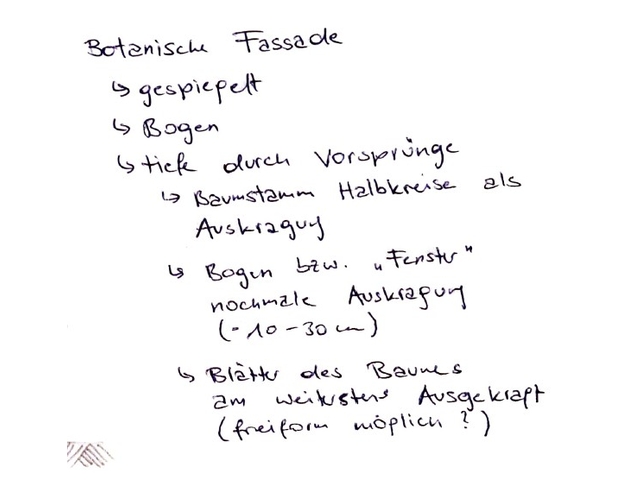 Botanische Fassade
↳ gespiegelt
↳ Bogen
↳ tiefe durch Vorsprünge
↳ Baumstamm Halbkreise als
Auskragung
↳ Bogen bzw. „Fenster"
nochmale Auskragung
(- 10 - 30 cm)
↳ Blätter des Baumes
am weitersten Ausgekragt
(freiform möglich ?)